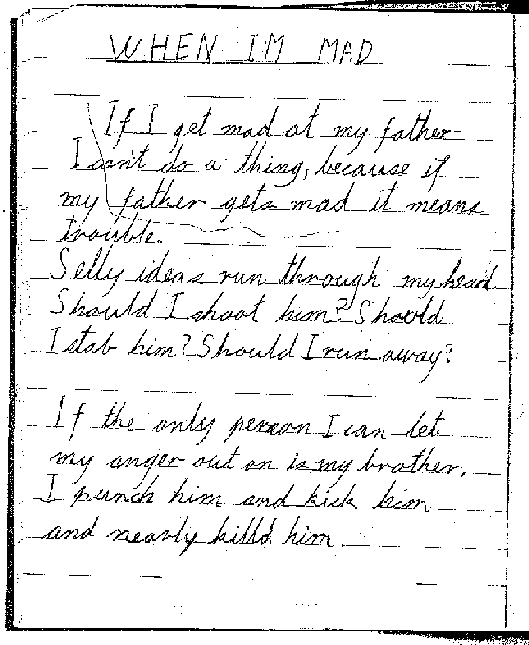 WHEN IM MAD
If I get mad at my father
I can't do a thing, because if
my father gets mad it means
trouble.
Selly ideas run through my head
Should I shoot him? Should
I stab him? Should I run away?
If the only person I can let
my anger out on is my brother.
I punch him and kick him
and nearly killd him